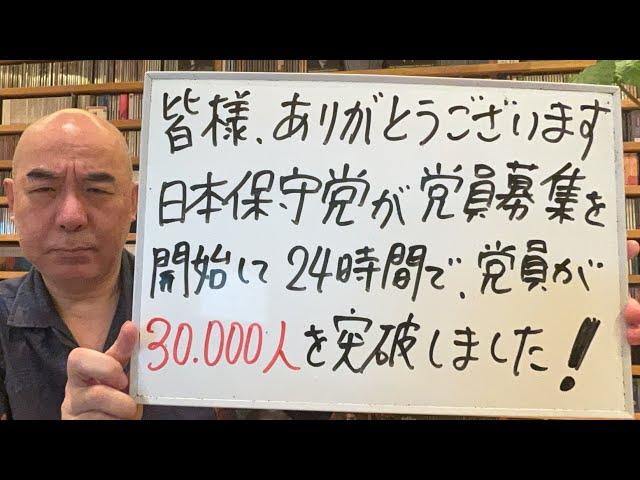 皆様、ありがとうございます
日本保守党が党員募集を
開始して24時間で、党員が
30.000人を突破しました！